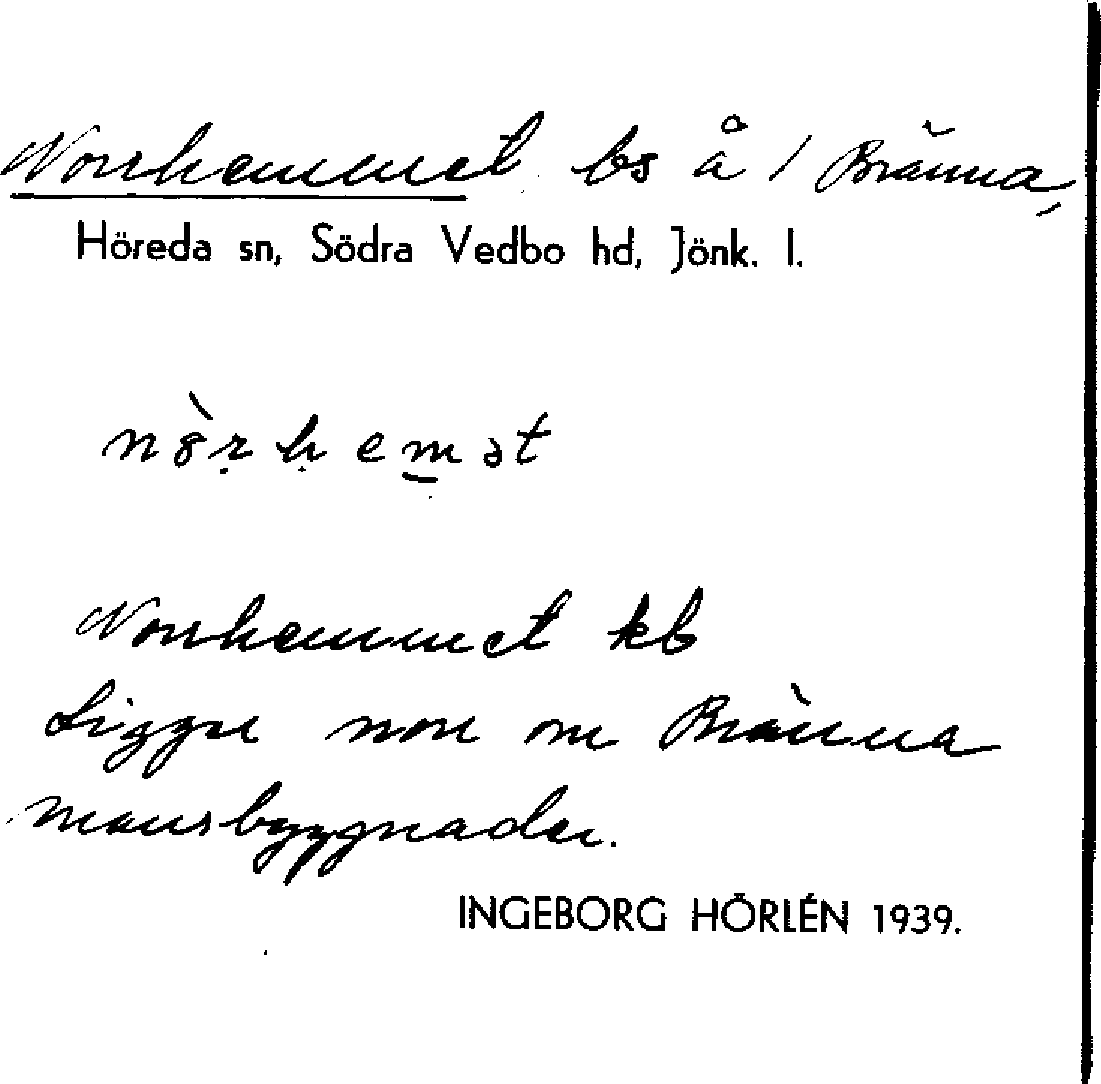 Norrhemmet bs å 1 Bränna,
Höreda sn, Södra Vedbo hd, Jönk. l.
Norrhemmet kb
Ligger norr om Bränna
mansbyggnader.
INGEBORG HÖRLÉN 1939.